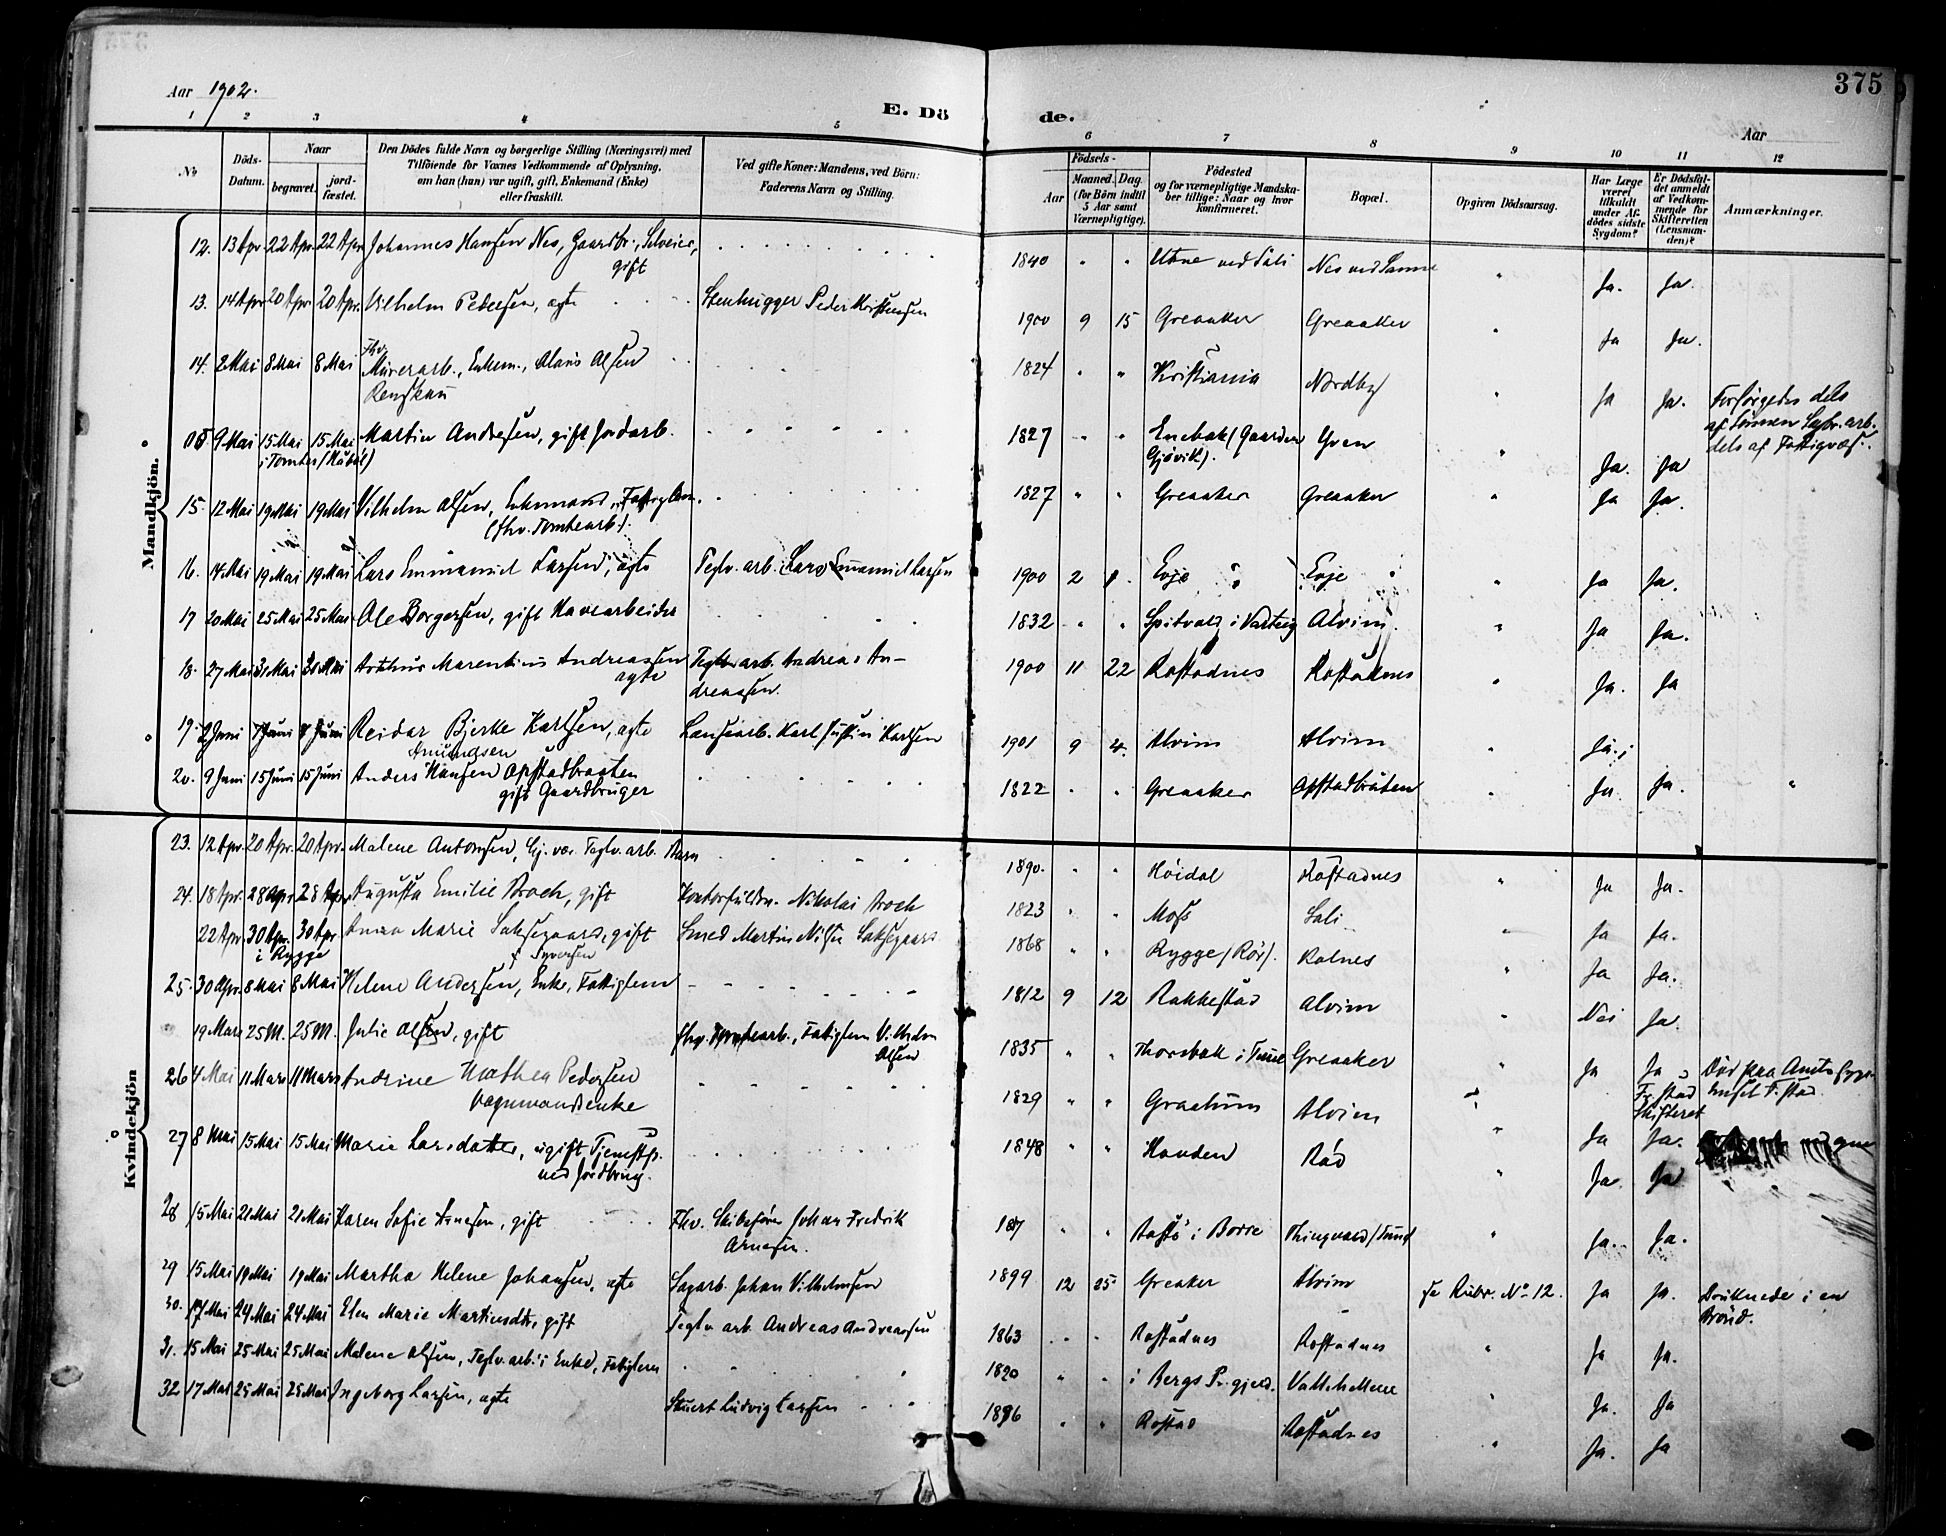 375
Aar 1902.
E. Dö de.
Aar
1 2 3 4 5 6 7 8 9 10 11 12
No
Döds-Datum.
Naar
begravet.
jord-fæstet.
Den Dödes fulde Navn og borgerlige Stilling (Næringsvei) med
Tilföiende for Voxnes Vedkommende af Oplysning,
om han (hun) var ugift, gift, Enkemand (Enke)
eller fraskilt.
Ved gifte Koner: Mandens, ved Börn:
Faderens Navn og Stilling.
Födsels-
Aar
Maaned. Dag.
(for Börn indtil
5 Aar samt
Værnepligtige).
Födested
og for værnepligtige Mandska-
ber tillige: Naar og hvor
konfirmeret.
Bopæl.
Opgiven Dödsaarsag.
Har Læge
været
tilkaldt
under Af-
dödes sidste
Sygdom?
Er Dödsfal-
det anmeldt
af Vedkom-
mende for
Skifteretten
(Lensman-
den)?
Anmærkninger.
Mandkjön.
12. 13 Apr 22 Apr. 22 Apr. Johannes Hansen Nes, Gaardbr., Selveier, 1840 Nes ved Ja. Ja.
gift
13. 14 Apr 20 Apr. 20 Apr. Vilhelm Pedersen, ægte Stenhugger Peder Kristensen 1900 9 15 Greaaker Greaaker Ja Ja.
Fhv.
14. 2 Mai 8 Mai 8 Mai Murerarb., Enkem., Olaus Olsen 1824 Kristiania Nordby Ja Ja. Forsörgedes dels
af Sönnen
dels af Fattigvæs.
9 Mai 15 Mai 15 Mai Martin Andresen, gift Jordarb. 1827 Enebak (Gaarden Yven Ja. Ja
i Tomter Gjövik).
15. 12 Mai 19 Mai 19 Mai Vilhelm Olsen, Enkemand, Fattiglem. 1827 Greaaker Greaaker Ja Ja.
(fhv. Tomtearb.).
16. 14 Mai 19 Mai 19 Mai Lars Emmanuel Larsen, ægte Teglv. arb. Lars Emanuel Larsen 1900 2 Evje Evje Ja Ja.
17 20 Mai 25 Mai 25 Mai Ole Borgersen, gift Havearbeider 1832 i Varteig Alvim. Ja Ja.
18. 27 Mai 31 Mai 31 Mai Arthur Marentius Andreassen Teglv. arb. Andreas An- 1900 11 22 Rostadnes Rostadnes Ja. Ja
ægte dreassen.
19. 2 Juni 7 Juni 7 Juni Reidar Bjerke Karlsen, ægte Karl Justin Karlsen 1901 9 4. Alvim Alvim Ja.
Amundsen
20. 9 Juni 15 Juni 15 Juni Anders Hansen Opstadbraaten 1822 Greaaker Opstadbråten Ja. Ja.
gift Gaardbruger
Kvindekjön
23. 12 Apr. 20 Apr. 20 Apr. Malene Antonsen, Teglv. arb. Barn 1890. Höidal Rostadnes Ja Ja.
24. 18 Apr. 28 Apr. 28 Apr. Augusta Emilie Broch, gift Nikolai Broch 1823 Moss Sali Ja Ja.
22 Apr. 30 Apr. 30 Apr. Anna Marie gift Smed Martin Nilsen 1868 Rygge (Rör). Kalnes Ja Ja.
i Rygge
f. Syversen
25. 30 Apr. 8 Mai 8 Mai Helene Andersen, Enke, Fattiglem 1812 9 12 Rakkestad Alvim Nei Ja.
19 Mars 25 M. 25 M. Julie Olsen, gift fhv. Tomtearb., Fattiglem Vilhelm 1835 Thorsbæk i Tune Greaaker Ja Ja Död paa Amtssyge-
Olsen Fr.stad huset F.stad.
Skifteret
26 4 Mai 11 Mars 11 Mars Andrine Mathea Pedersen 1829 Graatun Alvim Ja Ja.
Vognmandsenke
27 8 Mai 15 Mai 15 Mai Marie Larsdatter, ugift Tjenestp. 1848 Rød Ja Ja
ved Jordbrug.
28 15 Mai 21 Mai 21 Mai Karen Sofie Arnesen, gift Fhv. Skibsförer Johan Fredrik i Borre Ja. Ja.
Arnesen.
29 15 Mai 19 Mai 19 Mai Martha Helene Johansen, ægte Sagarb. Johan Vilhelmsen 1899 12 25 Greaker Alvim se Rubr. No 12. Ja Ja. Druknede i en
Brönd.
30. 17 Mai 24 Mai 24 Mai Elen Marie Martinsdtr., gift Teglv. arb. Andreas Andreassen 1863 Rostadnes Rostadnes Ja Ja.
31. 15 Mai 25 Mai 25 Mai Malene Olsen, Teglv. arb. Enke, Fattiglem 1820 i Bergs Pr.gjeld. Ja. Ja
32 17 Mai 25 Mai 25 Mai Ingeborg Larsen, ægte Ludvig Larsen Rostad Rostadnes Ja. Ja